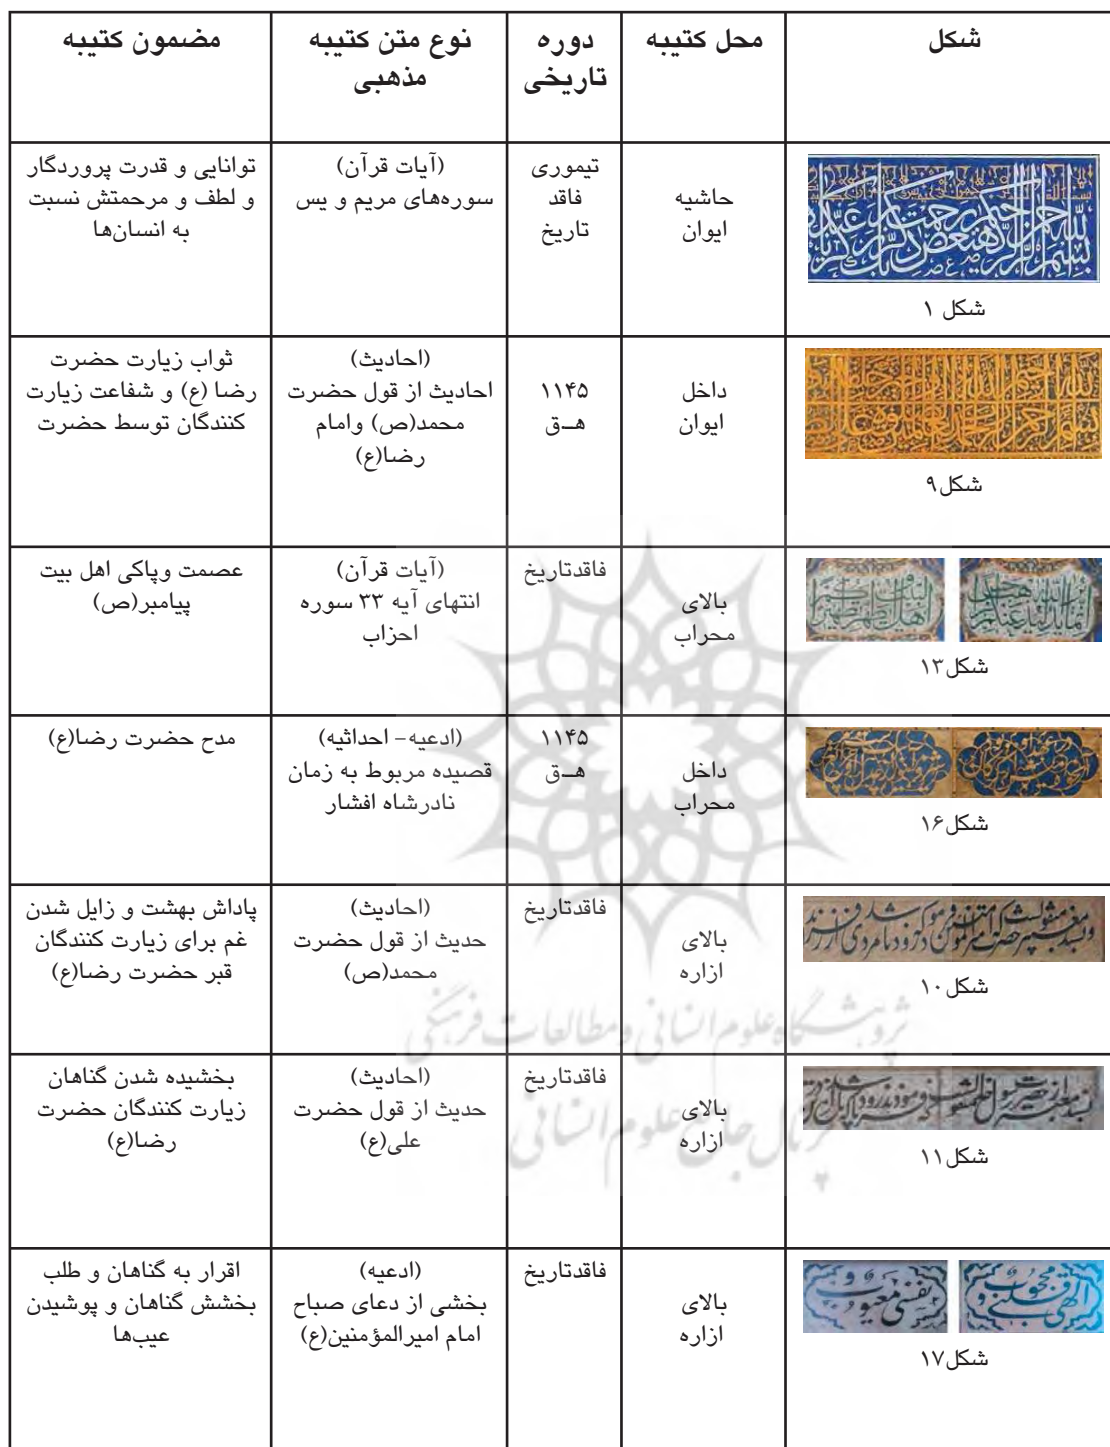 شکل
محل کتیبه
دوره
تاریخی
نوع متن کتیبه
مذهبی
مضمون کتیبه
شکل ۱
حاشیه
ایوان
تیموری
فاقد
تاریخ
(آیات قرآن)
سوره‌های مریم و یس
توانایی و قدرت پروردگار
و لطف و مرحمتش نسبت
به انسان‌ها
شکل۹
داخل
ایوان
۱۱۴۵
هــق
(احادیث)
احادیث از قول حضرت
محمد(ص) وامام
رضا(ع)
ثواب زیارت حضرت
رضا (ع) و شفاعت زیارت
کنندگان توسط حضرت
شکل۱۳
بالای
محراب
فاقدتاریخ
(آیات قرآن)
انتهای آیه ۳۳ سوره
احزاب
عصمت وپاکی اهل بیت
پیامبر(ص)
شکل۱۶
داخل
محراب
۱۱۴۵
هــق
(ادعیه- احداثیه)
قصیده مربوط به زمان
نادرشاه افشار
مدح حضرت رضا(ع)
شکل۱۰
بالای
ازاره
فاقدتاریخ
(احادیث)
حدیث از قول حضرت
محمد(ص)
پاداش بهشت و زایل شدن
غم برای زیارت کنندگان
قبر حضرت رضا(ع)
پژوهشگاه علوم انسانی و مطالعات فرهنگی
شکل۱۱
بالای
ازاره
فاقدتاریخ
(احادیث)
حدیث از قول حضرت
علی(ع)
بخشیده شدن گناهان
زیارت کنندگان حضرت
رضا(ع)
پرتال جامع علوم انسانی
الهی قلبی محجوب
و نفسی معیوب و
شکل۱۷
بالای
ازاره
فاقدتاریخ
(ادعیه)
بخشی از دعای صباح
امام امیرالمؤمنین(ع)
اقرار به گناهان و طلب
بخشش گناهان و پوشیدن
عیب‌ها